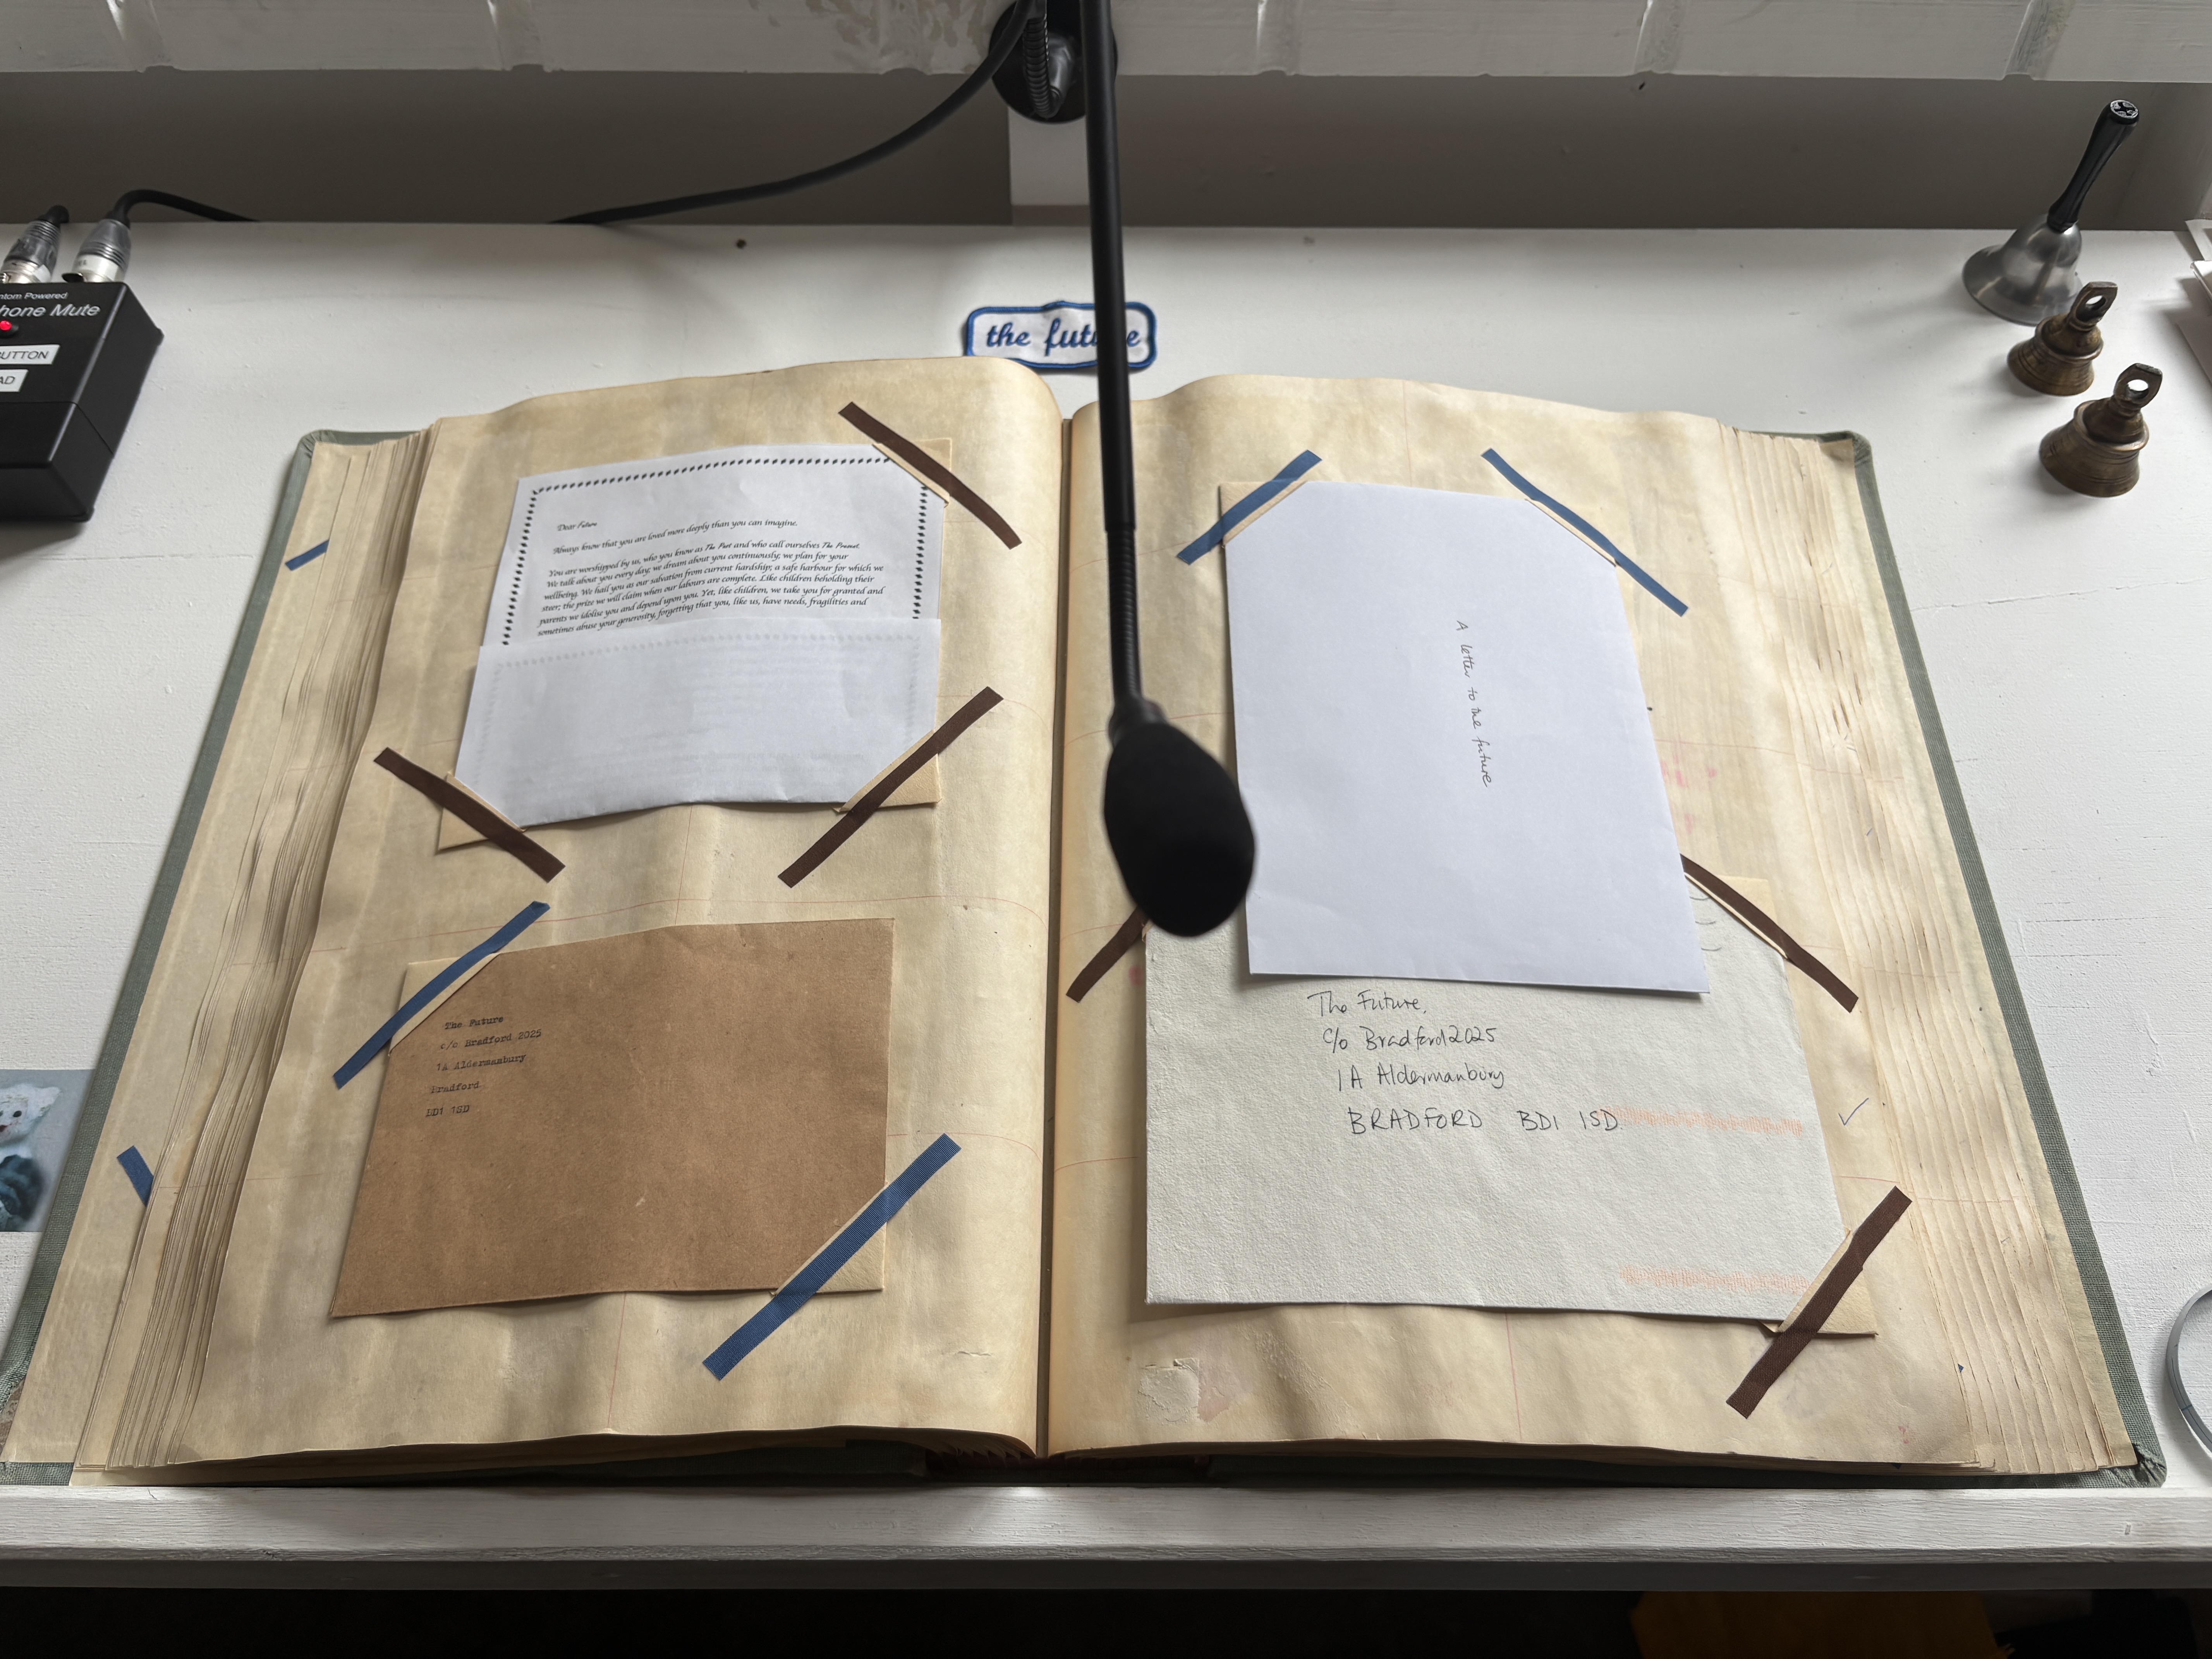 Phantom Powered
Microphone Mute
BUTTON
the future
Dear Future
Always know that you are loved more deeply than you can imagine.
You are worshipped by us, who you know as The Past and who call ourselves The Present.
We talk about you every day; we dream about you continuously; we plan for your
wellbeing. We hail you as our salvation from current hardship; a safe harbour for which we
steer; the prize we will claim when our labours are complete. Like children beholding their
parents we idolise you and depend upon you. Yet, like children, we take you for granted and
sometimes abuse your generosity, forgetting that you, like us, have needs, fragilities and
The Future
c/o Bradford 2025
1A Aldermanbury
Bradford
BD1 1SD
A letter to the future
The Future,
c/o Bradford2025
1A Aldermanbury
BRADFORD BD1 1SD